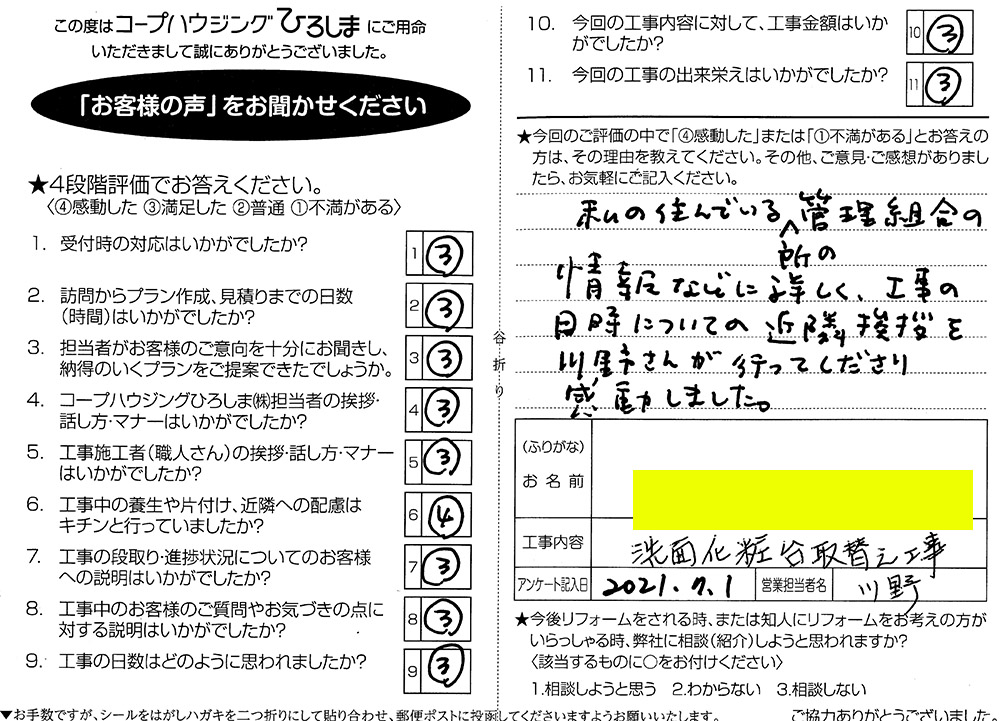 この度はコープハウジングひろしまにご用命
いただきまして誠にありがとうございました。
「お客様の声」をお聞かせください
★4段階評価でお答えください。
〈④感動した ③満足した ②普通 ①不満がある〉
1. 受付時の対応はいかがでしたか?
1 ③
2. 訪問からプラン作成、見積りまでの日数
(時間)はいかがでしたか?
2 ③
3. 担当者がお客様のご意向を十分にお聞きし、
納得のいくプランをご提案できたでしょうか。
3 ③
4. コープハウジングひろしま㈱担当者の挨拶・
話し方・マナーはいかがでしたか?
4 ③
5. 工事施工者(職人さん)の挨拶・話し方・マナー
はいかがでしたか?
5 ③
6. 工事中の養生や片付け、近隣への配慮は
キチンと行っていましたか?
6 ④
7. 工事の段取り・進捗状況についてのお客様
への説明はいかがでしたか?
7 ③
8. 工事中のお客様のご質問やお気づきの点に
対する説明はいかがでしたか?
8 ③
9. 工事の日数はどのように思われましたか?
9 ③
▼お手数ですが、シールをはがしハガキを二つ折りにして貼り合わせ、郵便ポストに投函してくださいますようお願いいたします。
谷折り
10. 今回の工事内容に対して、工事金額はいか
がでしたか?
10 ③
11. 今回の工事の出来栄えはいかがでしたか?
11 ③
★今回のご評価の中で「④感動した」または「①不満がある」とお答えの
方は、その理由を教えてください。その他、ご意見・ご感想がありまし
たら、お気軽にご記入ください。
私の住んでいる管理組合の
所の
情報などに詳しく、工事の
日時についての近隣挨拶を
川野さんが行ってくださり
感動しました。
(ふりがな)
お名前
工事内容 洗面化粧台取替え工事
アンケート記入日 2021.7.1 営業担当者名 川野
★今後リフォームをされる時、または知人にリフォームをお考えの方が
いらっしゃる時、弊社に相談(紹介)しようと思われますか?
〈該当するものに○をお付けください〉
1.相談しようと思う 2.わからない 3.相談しない
ご協力ありがとうございました